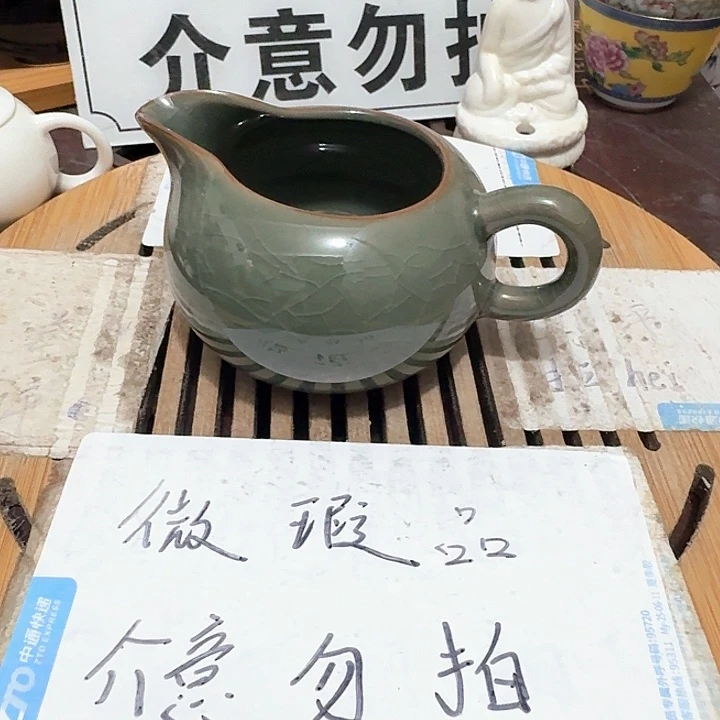 介意勿拍
hei
微瑕品
介意勿拍
中通快递
ZTO EXPRESS